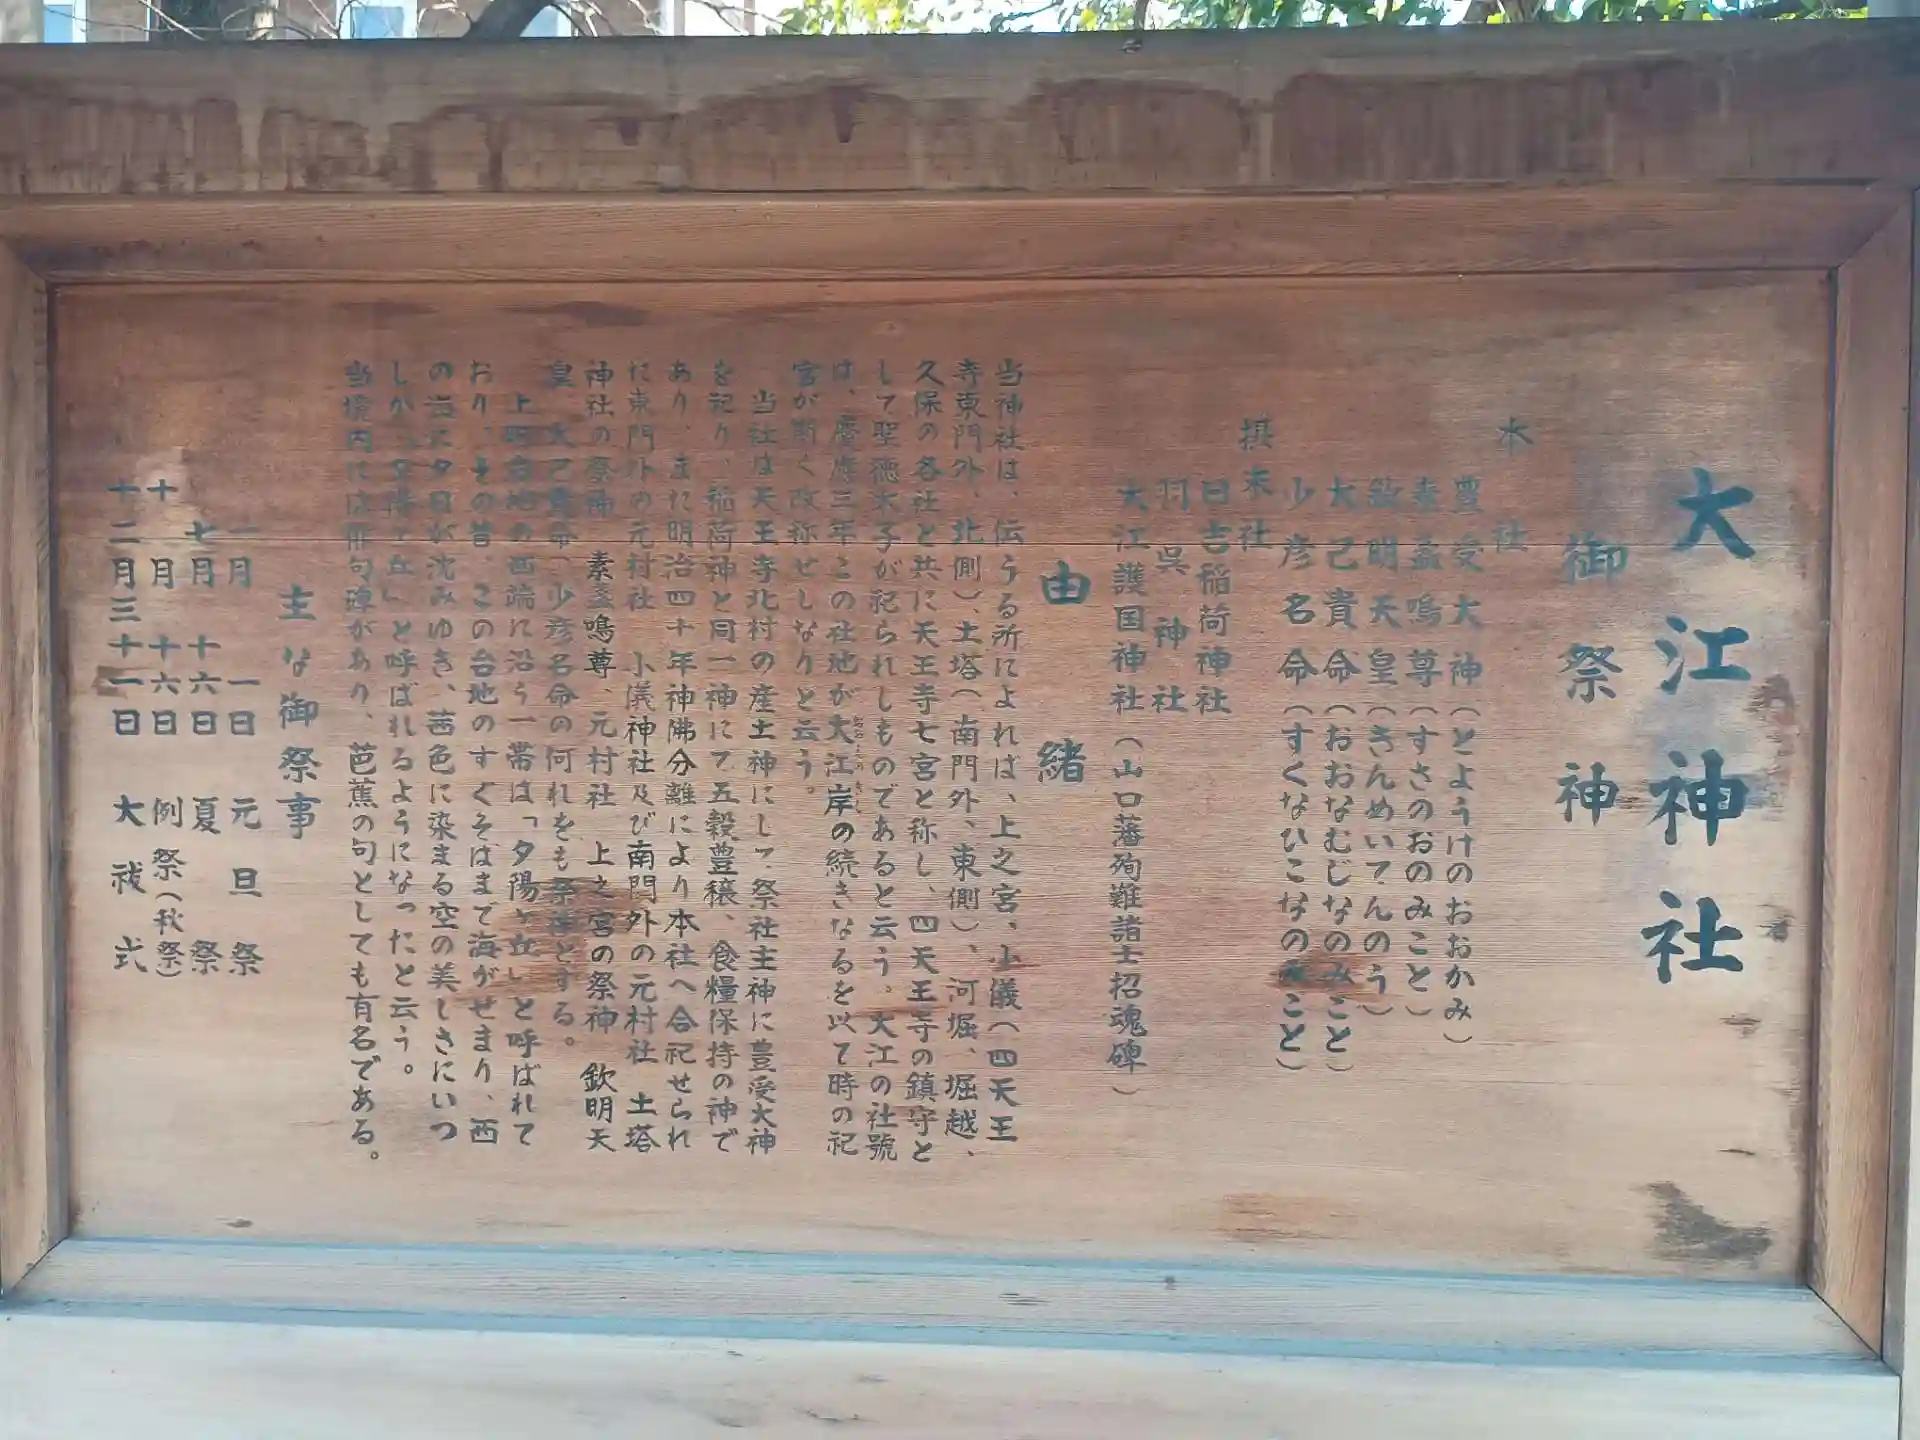 大江神社
御祭神
本社
豊受大神(とようけのおおかみ)
素盞嗚尊(すさのおのみこと)
欽明天皇(きんめいてんのう)
大己貴命(おおなむじなのみこと)
少彦名命(すくなひこなのみこと)
摂末社
日吉稲荷神社
羽呉神社
大江護国神社(山口藩殉難諸士招魂碑)
由緒
当神社は、伝うる所によれば、上之宮、小儀(四天王
寺東門外、北側)、土塔(南門外、東側)、河堀、堀越、
久保の各社と共に天王寺七宮と称し、四天王寺の鎮守と
して聖徳太子が祀られしものであると云う。大江の社號
は、暦應三年この社地が大江岸の続きなるを以て時の祀
宮が斯く改称せしなりと云う。
当社は天王寺北村の産土神にして、祭社主神に豊受大神
を祀り、稲荷神と同一神にて五穀豊穣、食糧保持の神で
あり、また明治四十年神佛分離により本社へ合祀せられ
に東門外の元村社 小儀神社及び南門外の元村社 土塔
神社の祭神 素盞嗚尊、元村社 上之宮の祭神 欽明天
皇、大己貴命、少彦名命の何れをも祭神とする。
上町台地の西端に沿う一帯は「夕陽ヶ丘」と呼ばれて
おり、その昔、この台地のすぐそばまで海がせまり、西
の海に夕日が沈みゆき、茜色に染まる空の美しさにいつ
しか「夕陽ヶ丘」と呼ばれるようになったと云う。
当境内には俳句碑があり、芭蕉の句としても有名である。
主な御祭事
一月 一日 元旦祭
七月 十六日 夏祭
十月 十六日 例祭(秋祭)
十二月三十一日 大祓式